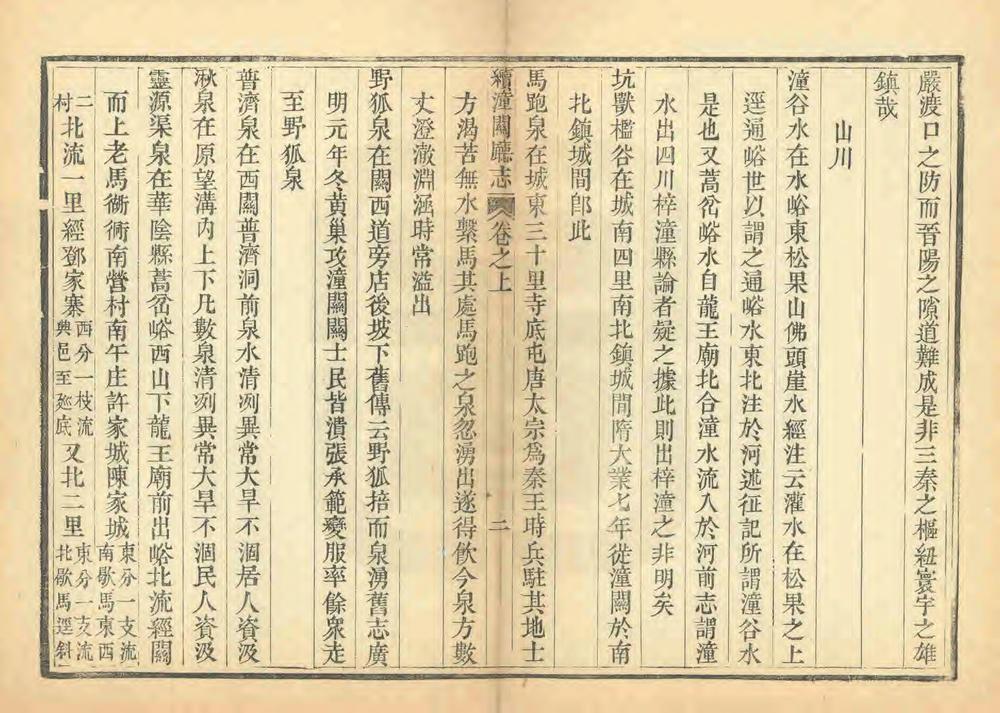 嚴渡口之防而晉陽之隙道難成是非三秦之樞紐寰宇之雄
鎮哉
山川
潼谷水在水峪東松果山佛頭崖水經注云灌水在松果之上
逕通峪世以謂之通峪水東北注於河述征記所謂潼谷水
是也又蒿岔峪水自龍王廟北合潼水流入於河前志謂潼
水出四川梓潼縣論者疑之據此則出梓潼之非明矣
坑獸檻谷在城南四里南北鎮城間隋大業七年徙潼關於南
北鎮城間卽此
馬跑泉在城東三十里寺底屯唐太宗爲秦王時兵駐其地士
續潼關廳志 卷之上 二
方渴苦無水繫馬其處馬跑之泉忽湧出遂得飲今泉方數
丈澄澈淵涵時常溢出
野狐泉在關西道旁店後坡下舊傳云野狐掊而泉湧舊志廣
明元年冬黃巢攻潼關關士民皆潰張承範變服率餘衆走
至野狐泉
普濟泉在西關普濟洞前泉水清冽異常大旱不涸居人資汲
湫泉在原望溝內上下凡數泉清冽異常大旱不涸民人資汲
靈源渠泉在華陰縣蒿岔峪西山下龍王廟前出峪北流經關
而上老馬衚衕南營村南午庄許家城陳家城東分一支流南歇馬東西
二村北流一里經鄧家寨西分一枝流興邑至𨒪底又北二里東分一支流北歇馬逕斜